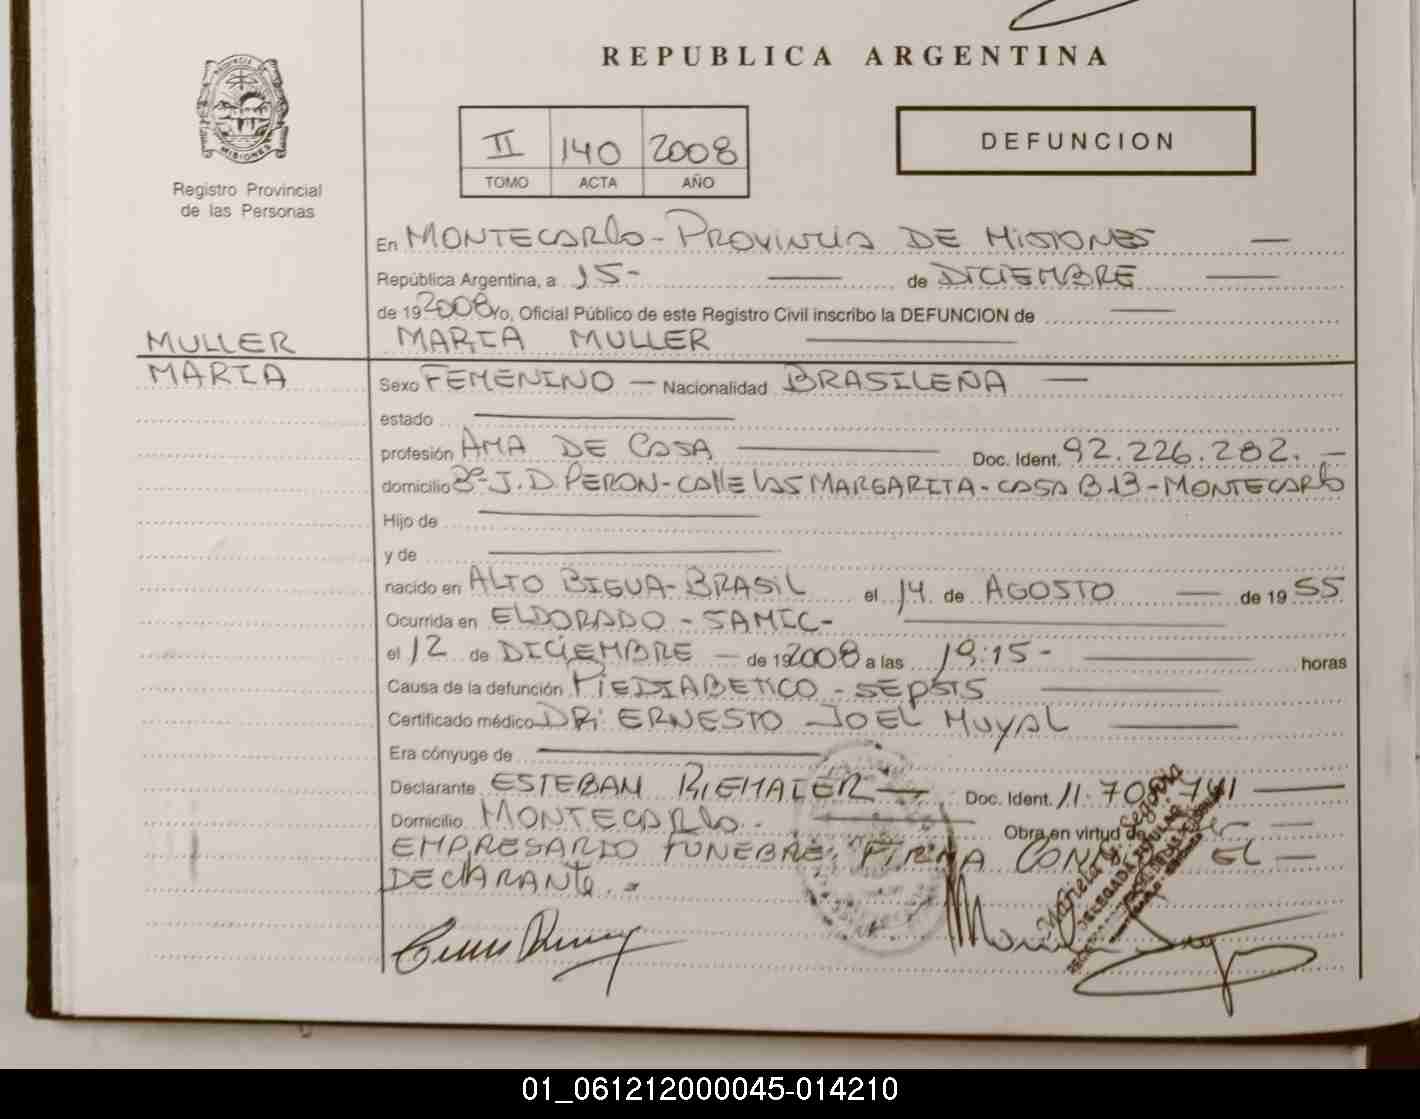 REPUBLICA ARGENTINA
PROVINCIA DE
MISIONES
Registro Provincial
de las Personas
II 140 2008
TOMO ACTA AÑO
DEFUNCION
En MONTECARLO - PROVINCIA DE MISIONES —
República Argentina, a 15- — de DICIEMBRE —
de 19 2008 Yo, Oficial Público de este Registro Civil inscribo la DEFUNCION de —
MULLER
MARIA
MARIA MULLER —
Sexo FEMENINO — Nacionalidad BRASILEÑA —
estado —
profesión AMA DE CASA — Doc. Ident. 92.226.282. —
domicilio Bº J.D. PERON - CALLE LAS MARGARITA - CASA B 13 - MONTECARLO
Hijo de —
y de —
nacido en ALTO BIGUA - BRASIL el 14 de AGOSTO — de 19 55
Ocurrida en ELDORADO - SAMIC - —
el 12 de DICIEMBRE — de 19 2008 a las 19:15 - — horas
Causa de la defunción PIEDIABETICO - SEPSIS —
Certificado médico DR: ERNESTO JOEL MUYAL —
Era cónyuge de —
Declarante ESTEBAN RIEMAIER — Doc. Ident. 11.705.741 —
Domicilio MONTECARLO. — Obra en virtud de —
EMPRESARIO FUNEBRE. FIRMA CONMIGO EL —
DECLARANTE. -
01_061212000045-014210